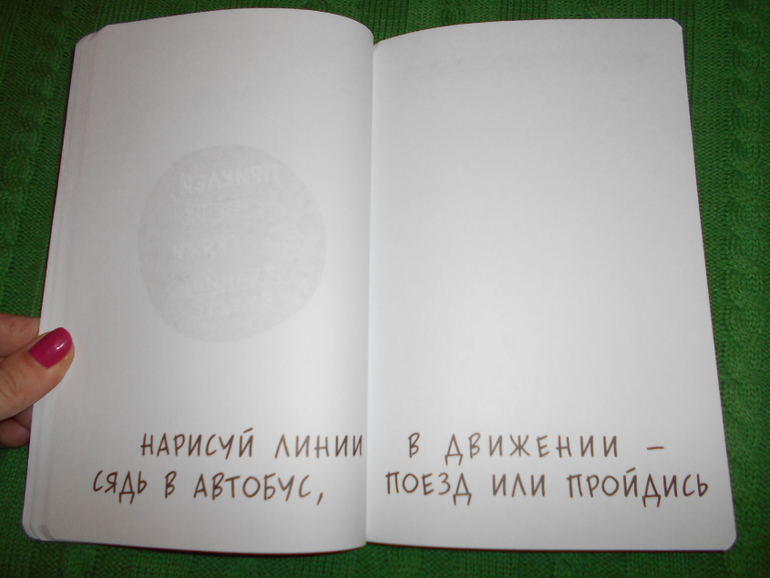 НАРИСУЙ ЛИНИИ В ДВИЖЕНИИ –
СЯДЬ В АВТОБУС, ПОЕЗД ИЛИ ПРОЙДИСЬ